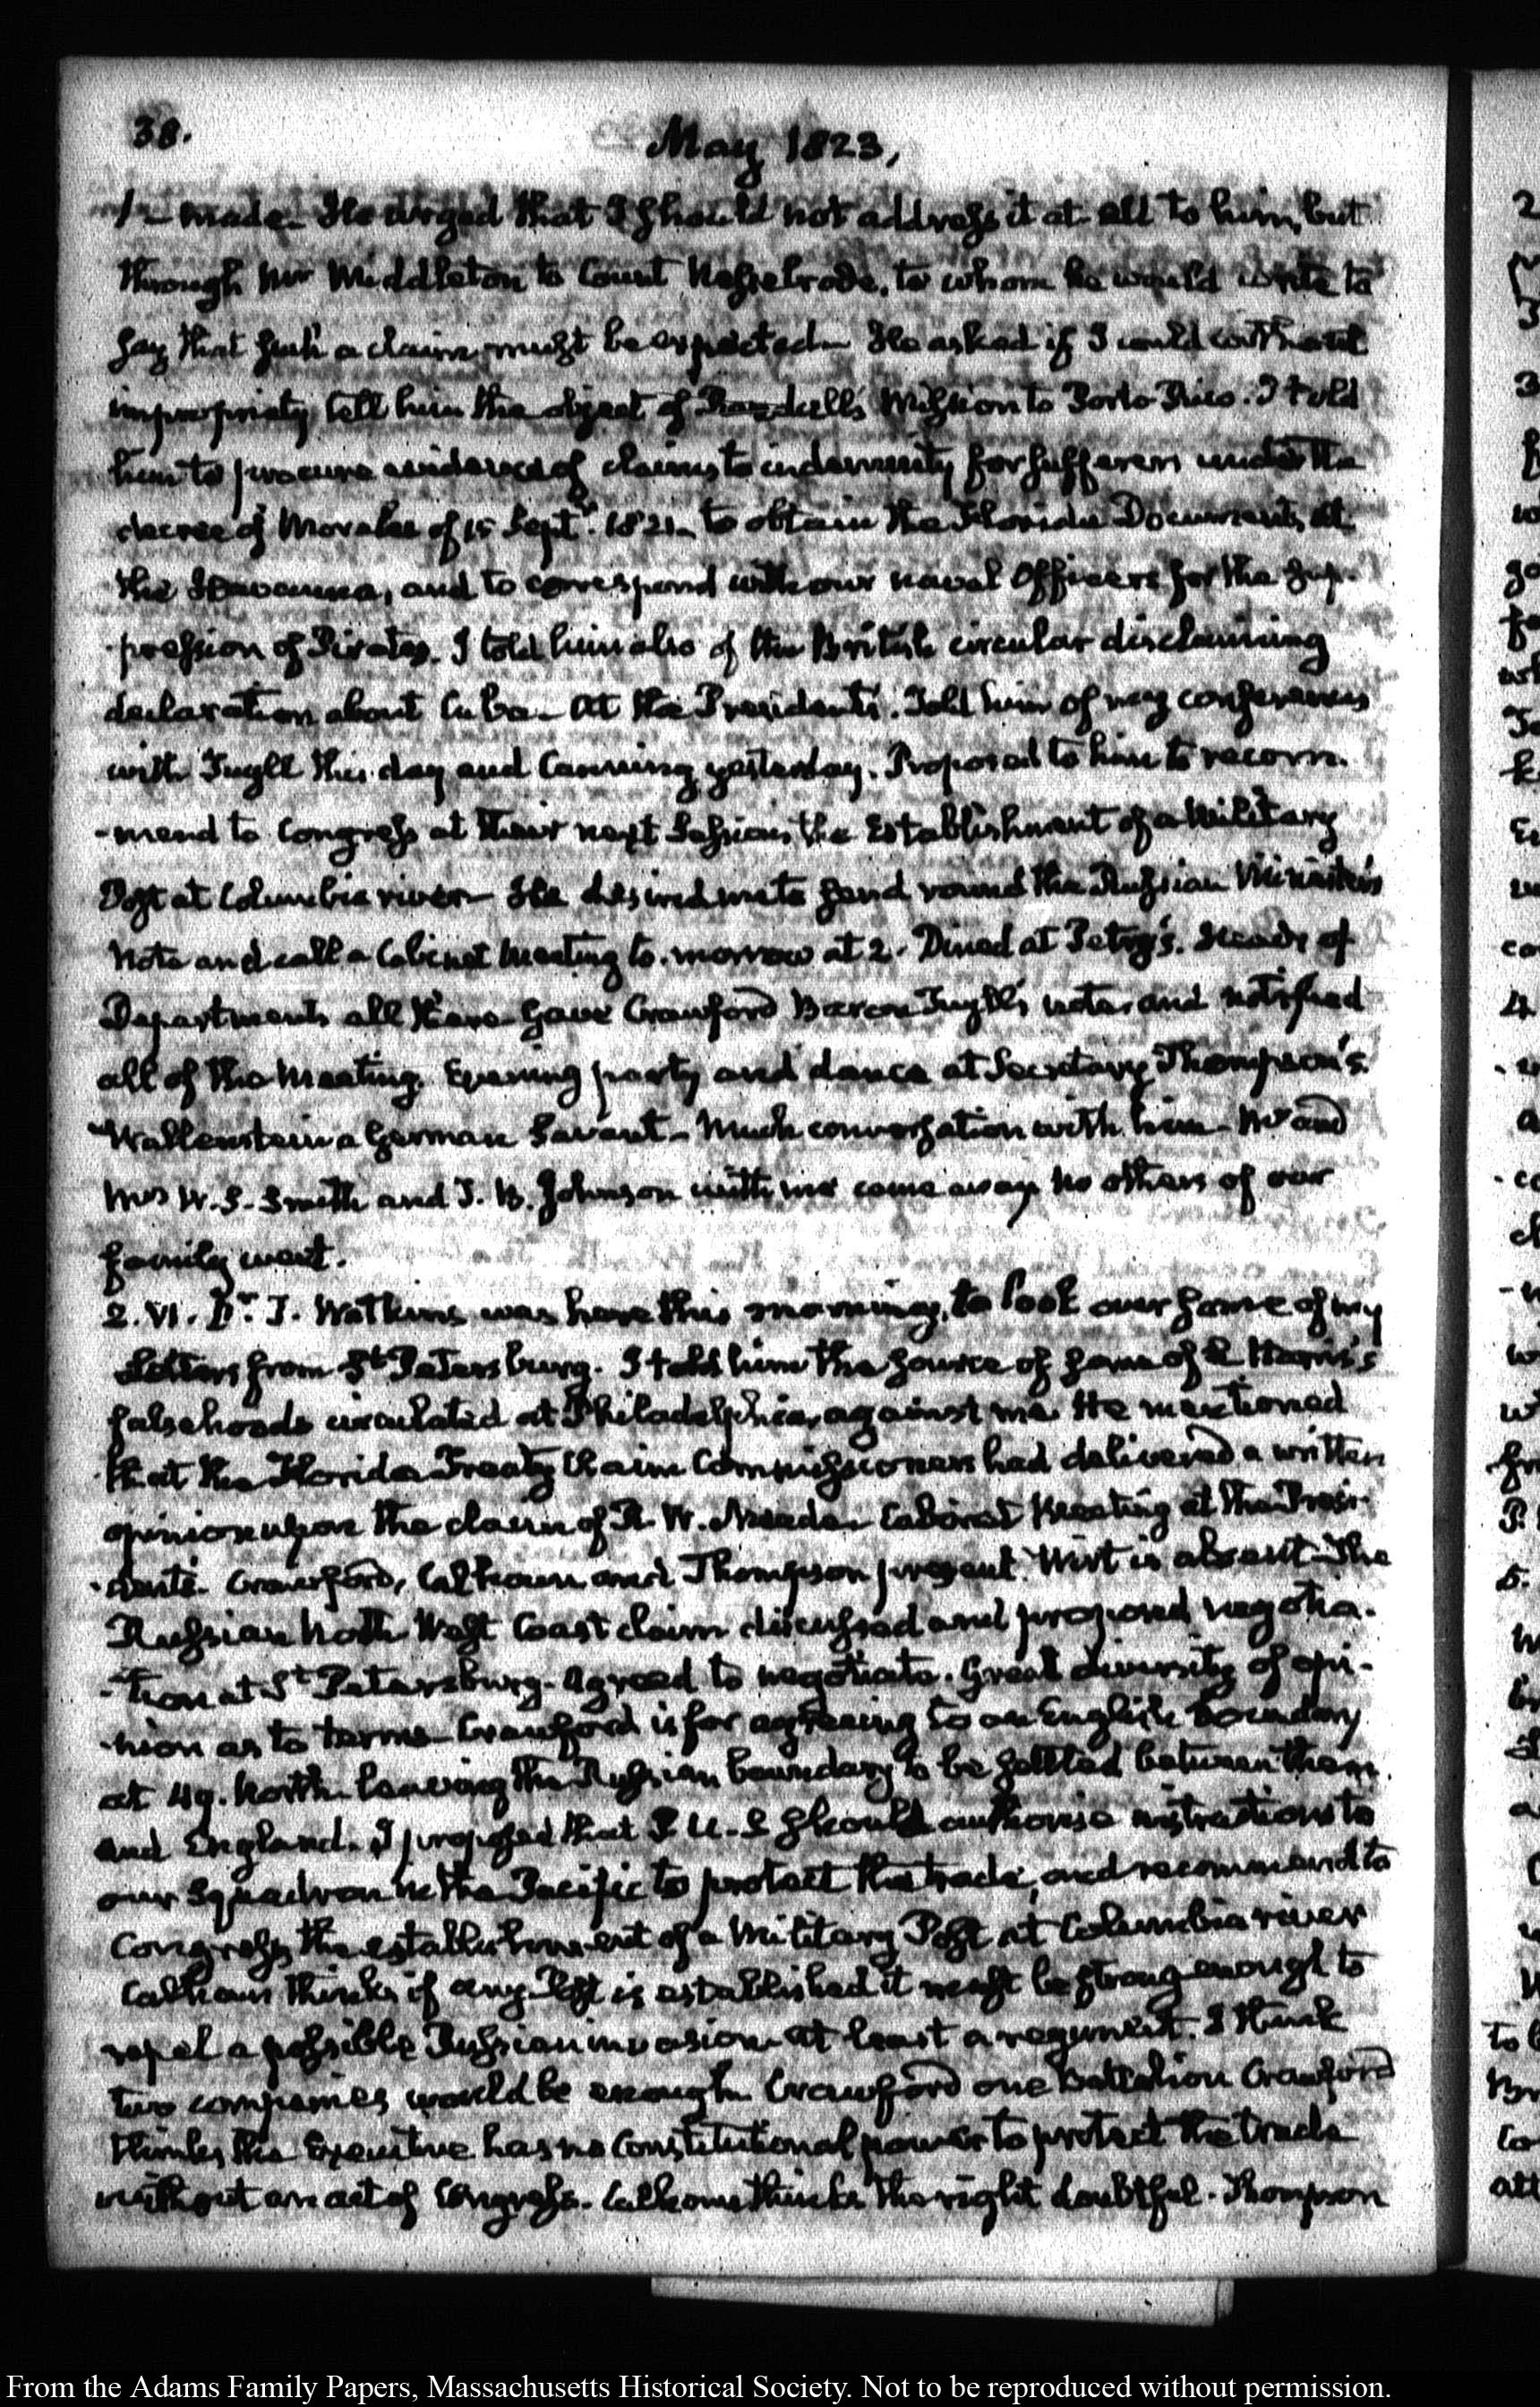 38.
May 1823,
1 - made - He urged that I should not address it at all to him, but
through Mr Middleton to Count Nesselrode, to whom he would write to
say that such a claim must be expected - He asked if I could without
impropriety tell him the object of Randall's Mission to Porto Rico. I told
him to procure evidence of claims to indemnity for sufferers under the
decree of Morales of 15 Septr. 1821 - to obtain the Florida Documents at
the Havanna, and to correspond with our naval Officers for the sup-
-pression of Pirates. I told him also of the British circular disclaiming
declaration about Cuba - At the President's. Told him of my conferences
with Tuyll this day and Canning yesterday. Proposed to him to recom-
-mend to Congress at their next Session, the Establishment of a Military
Post at Columbia river - He desired me to send round the Russian Minister's
Note and call a Cabinet Meeting to-morrow at 2. Dined at Petry's. Heads of
Departments all there - Gave Crawford Baron Tuyll's note, and notified
all of the Meeting. Evening party and dance at Secretary Thompson's.
Wallenstein a German Savant - Much conversation with him - Mr and
Mrs W. S. Smith and J. B. Johnson with me came away no others of our
family went.
2. VI. Dr. T. Watkins was here this morning, to look over some of my
Letters from St. Petersburg. I told him the source of some of L Harris's
falsehoods circulated at Philadelphia, against me. He mentioned
that the Florida Treaty Claim Commissioners had delivered a written
opinion upon the claim of R. W. Meade - Cabinet Meeting at the Presi-
-dent's - Crawford, Calhoun and Thompson present. Wirt is absent - The
Russian North West Coast claim discussed and proposed negotia-
-tion at St. Petersburg - Agreed to negotiate. Great diversity of opi-
-nion as to terms - Crawford is for agreeing to an English boundary
at 49. North - leaving the Russian boundary to be settled between them
and England. I proposed that P. U. S. should authorise instructions to
our Squadron in the Pacific to protect the trade, and recommend to
Congress the establishment of a Military Post at Columbia river
Calhoun thinks if any Post is established it must be strong enough to
repel a possible Russian invasion - at least a regiment. I think
two companies would be enough - Crawford one Battalion Crawford
thinks the Executive has no Constitutional power to protect the trade
without an act of Congress. Calhoun thinks the right doubtful. Thompson
From the Adams Family Papers, Massachusetts Historical Society. Not to be reproduced without permission.